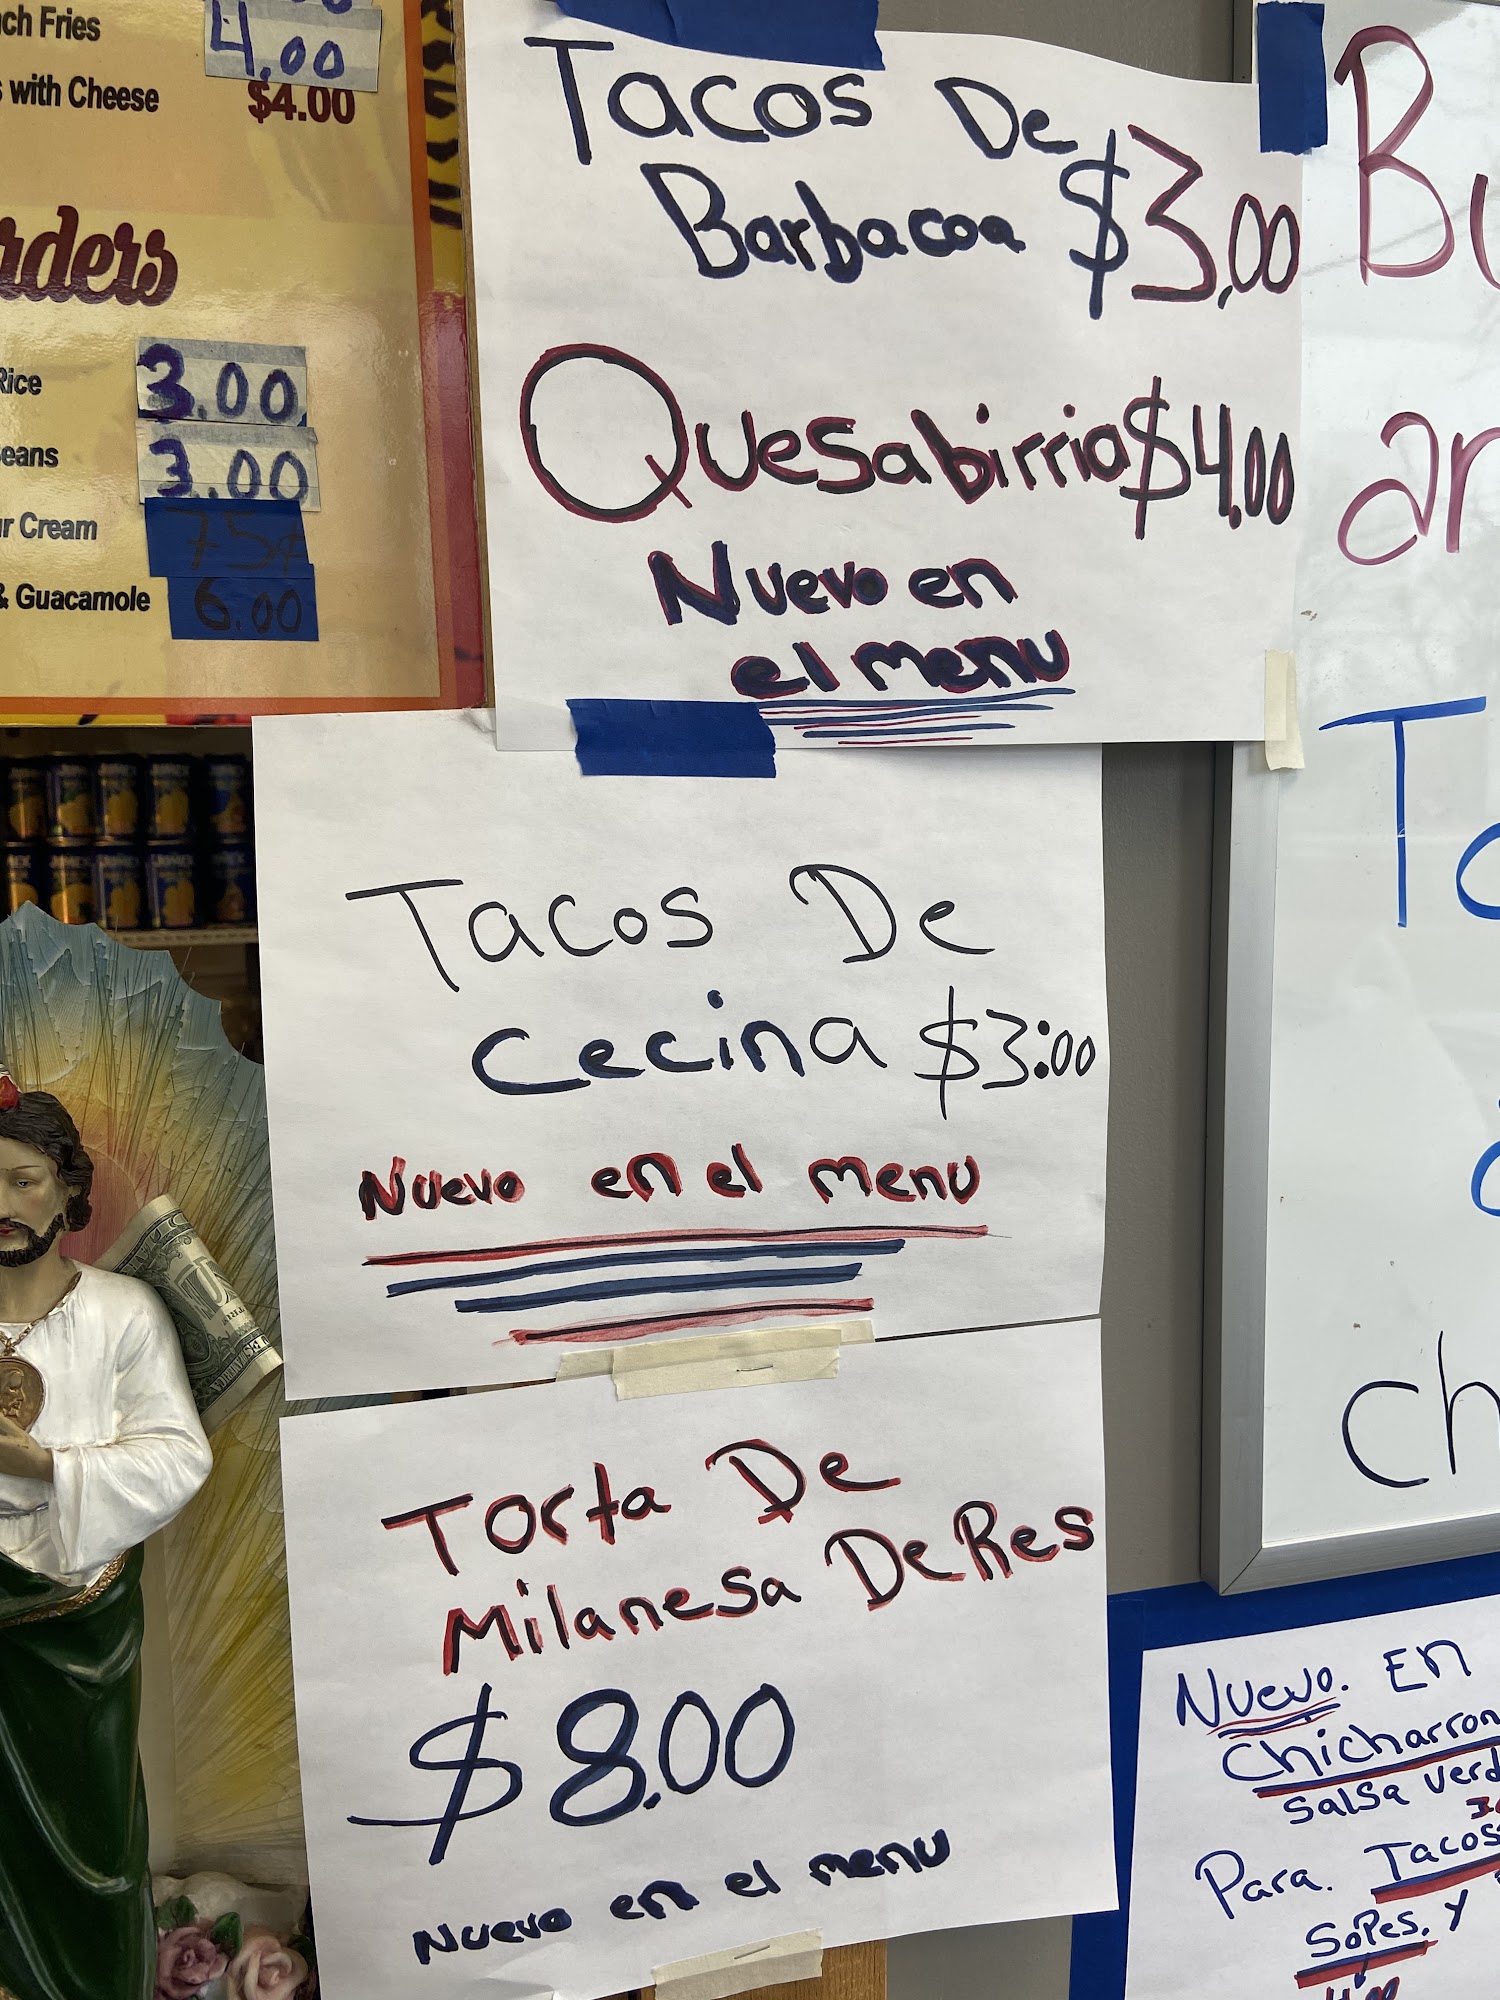 Fries
4.00
with Cheese $4.00
Rice 3.00
3.00
Cream 75¢
& Guacamole 6.00
Tacos De
Barbacoa $3.00
Quesabirria $4.00
Nuevo en
el menu
Tacos De
Cecina $3:00
Nuevo en el menu
Torta De
Milanesa De Res
$8.00
Nuevo en el menu
Nuevo. En
Chicharron
Salsa Verd
Para. Tacos
Sopes. Y
4.00